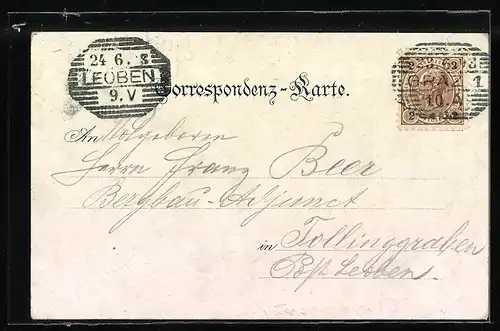 24 6. 8
LEOBEN
9. V
Correspondenz-Karte.
2 2
GRA
10
2 2
1
An Wolgeboren
Herrn Franz Beer
Bergbau-Adjunct
in Tollinggraben
Post Leoben.